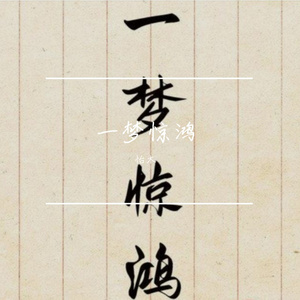 一梦惊鸿
一梦惊鸿